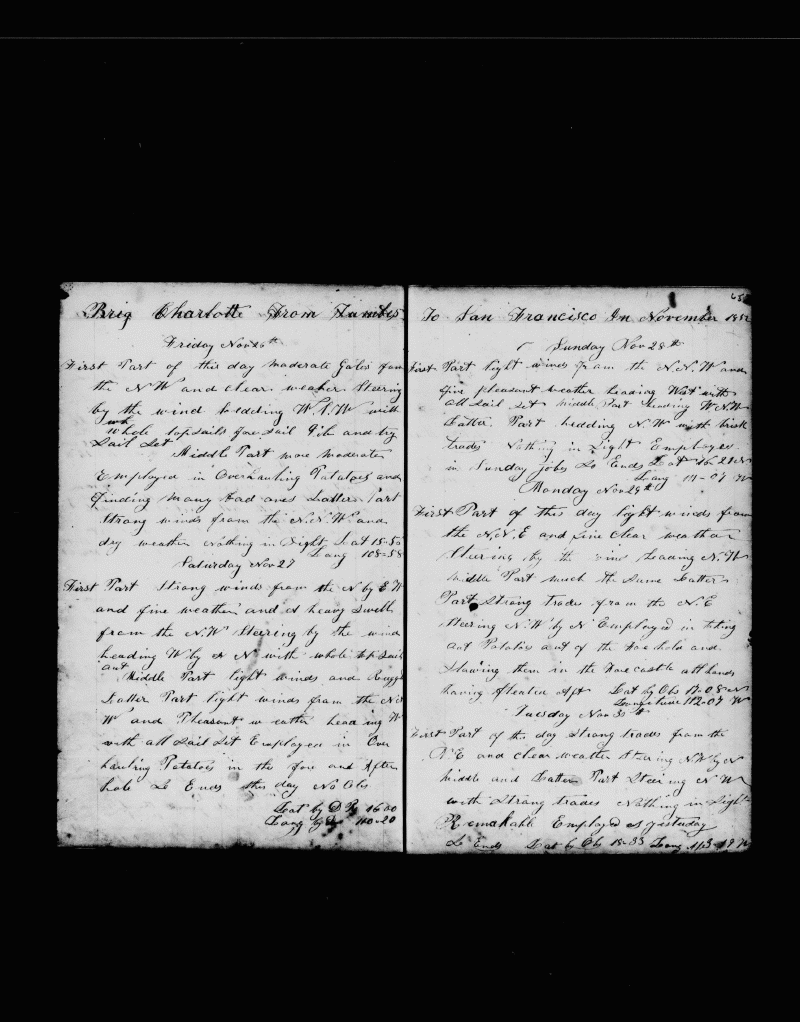 Brig Charlotte From Tumbes
Friday Nov 26th
First Part of this day moderate Gales from
the N W and clear weather Steering
by the wind hedding W S W with
whole topsails fore sail Gib and try
Sail Set
Middle Part more moderate
Employed in Overhauling Potatoes and
finding many bad ones Latter Part
Strong winds from the N.N.W and
day weather Nothing in Sight Lat 15-50
Long 108-58
Saturday Nov 27
First Part Strong winds from the N by E W
and fine weather and A heavy Swell
from the N.W Steering by the wind
heading W by N with whole topsail
Middle Part light winds and
Latter Part light winds from the N N
W and Pleasant weather heading W
with all Sail Set Employed in Over
hauling Potatoes in the fore and After
hole So Ends this day No Obs
Lat by D R 16 00
Long by 110-20
65
To San Francisco In November 1852
Sunday Nov 28th
First Part light winds from the N.N.W and
fine pleasant weather heading West with
All Sail Set Middle Part heading W N.W
Latter Part hedding N.W with brisk
trades Nothing in Sight Employed
in Sunday jobs So Ends Lat 16-21 N
Long 111-07 W
Monday Nov 29th
First Part of this day light winds from
the N.N.E and fine clear weather
Steering by the wind heading N.W
Middle Part much the Same Latter
Part Strong trades from the N.E
Steering N.W by N Employed in taking
out Potatos out of the Fore hole and
Stowing them in the Fore castle all hands
having Aft Lat by Obs 17-08 N
Longetude 112-07 W
Tuesday Nov 30th
First Part of the day Strong trades from the
N.E and clear weather Steering N.W by N
Middle and Latter Part Steering N W
with Strong trades Nothing in Sight
Remakable Employed as yesterday
So Ends Lat by Obs 18-33 Long 113-19 W